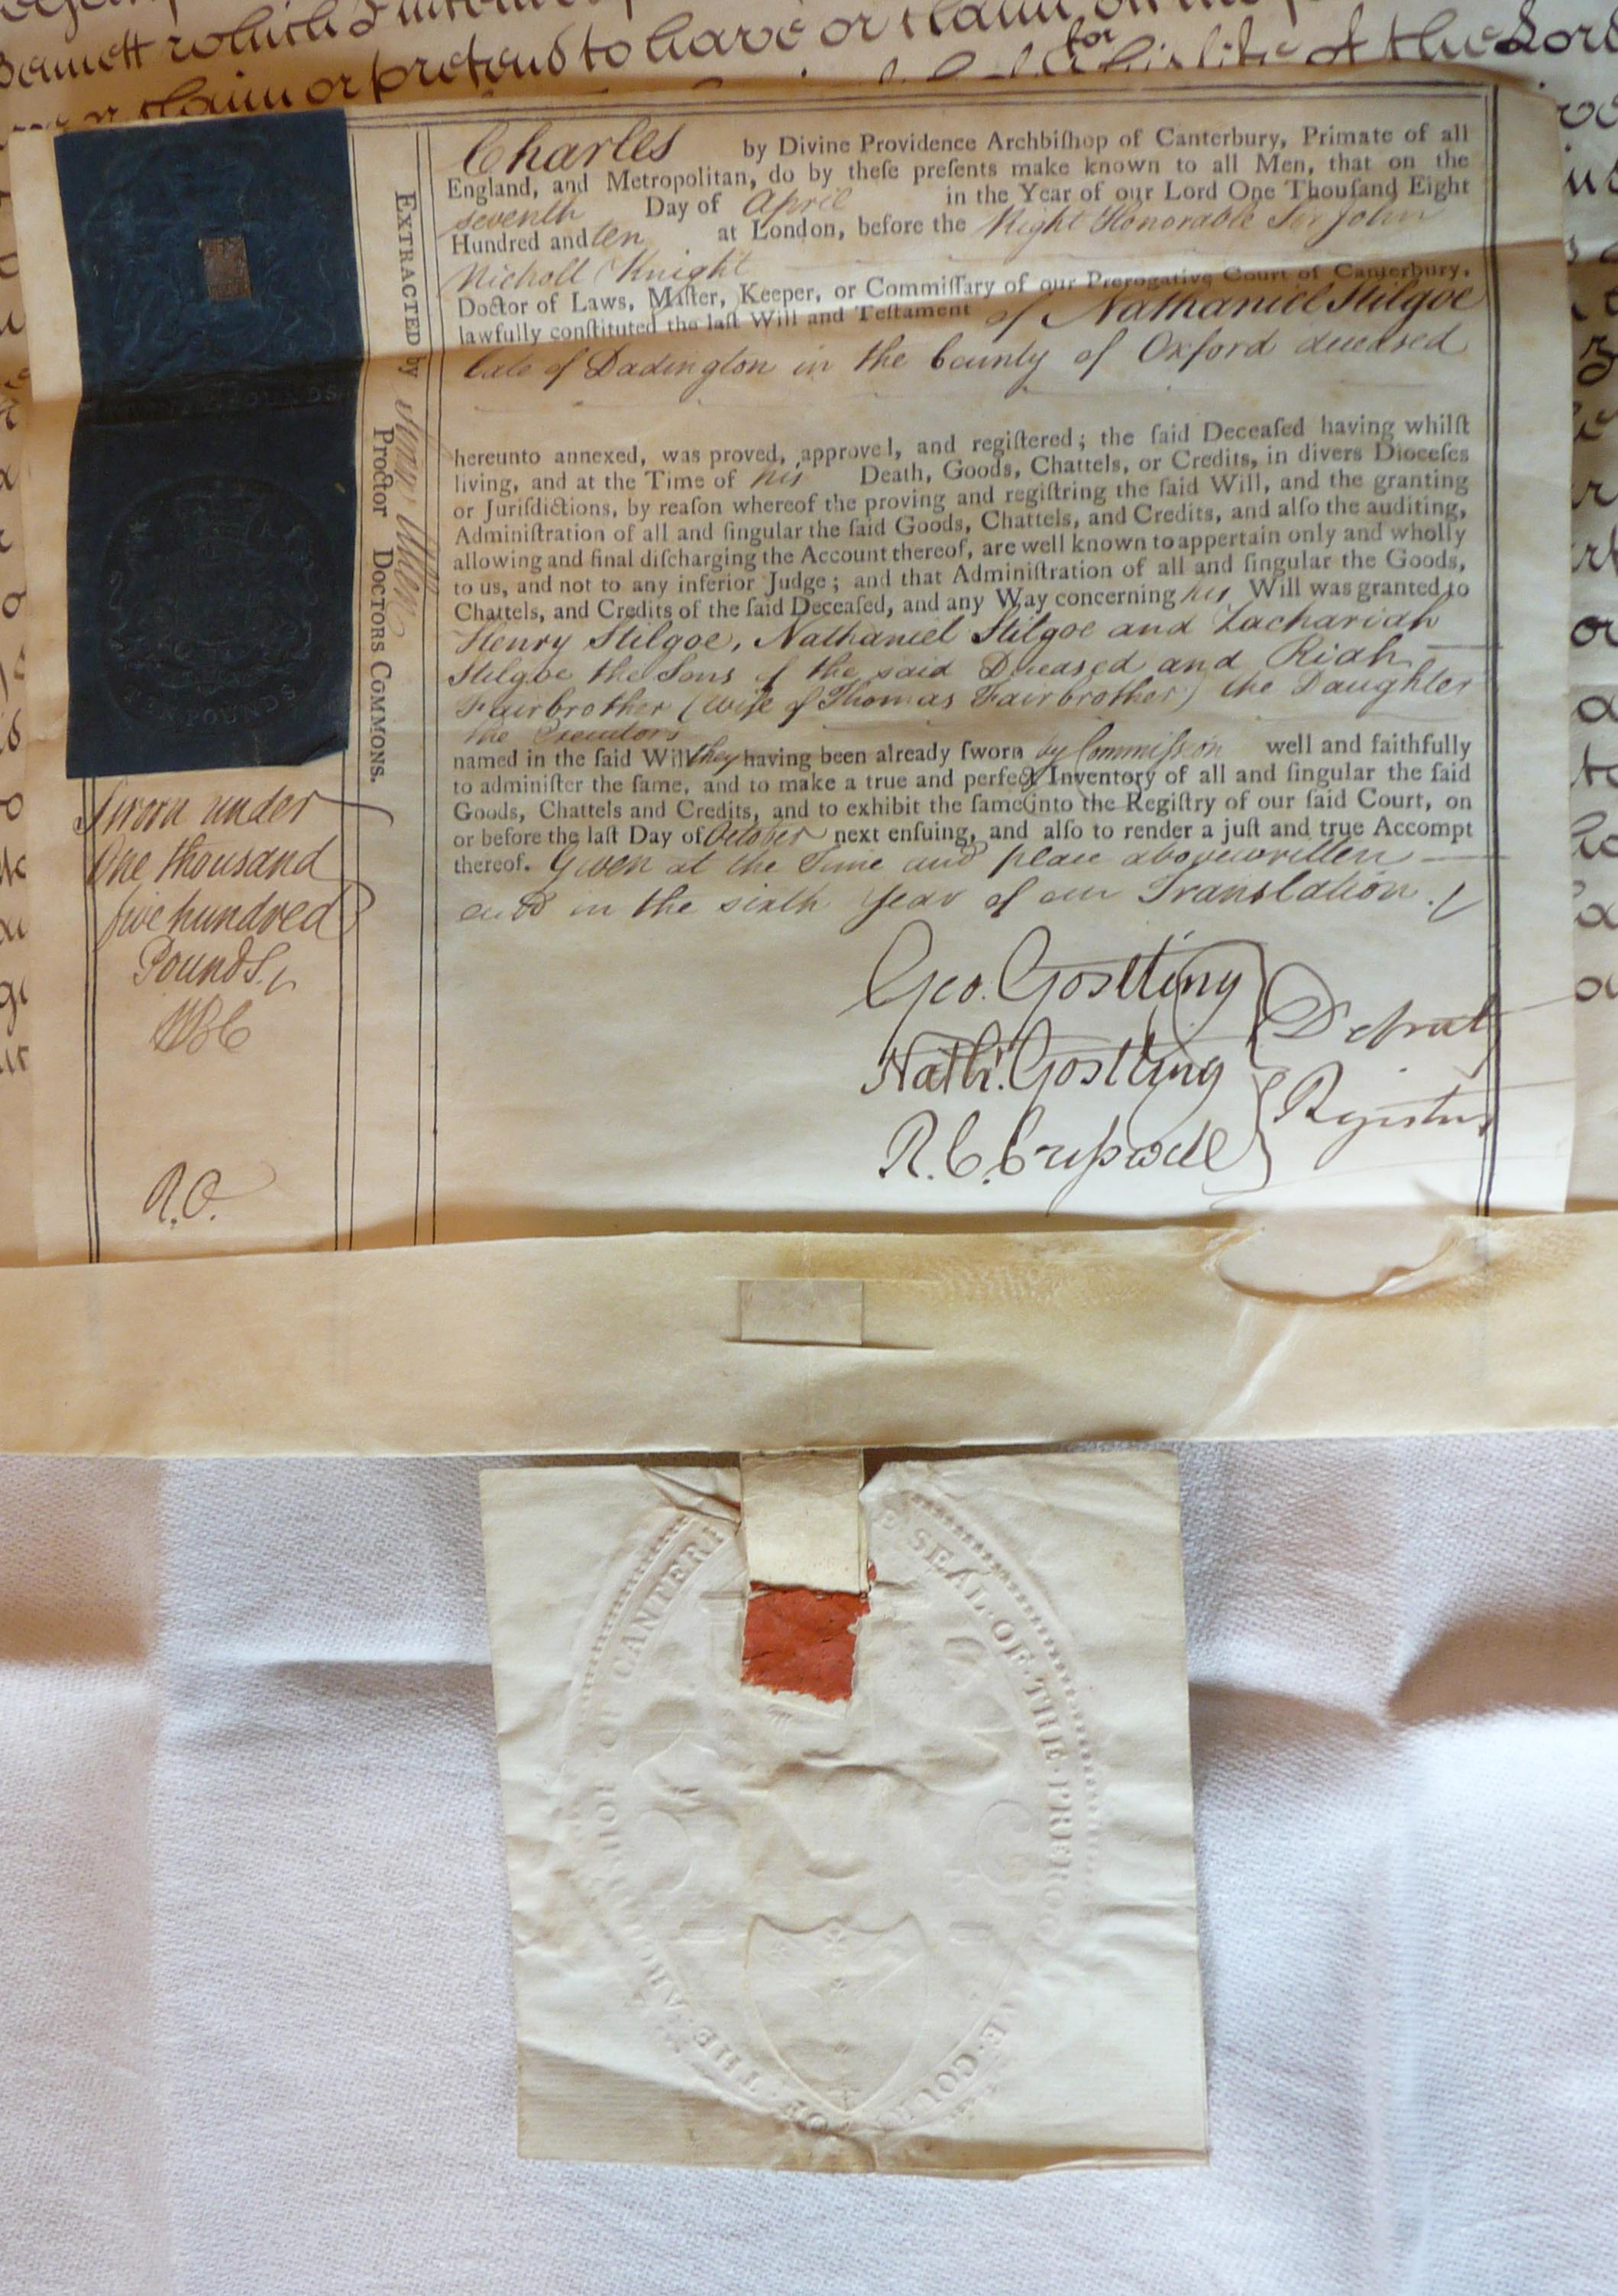 Bennett which I
claim or pretend to have or claim
for his life of the Lord
Charles by Divine Providence Archbiſhop of Canterbury, Primate of all
England, and Metropolitan, do by theſe preſents make known to all Men, that on the
seventh Day of April in the Year of our Lord One Thouſand Eight
Hundred and ten at London, before the Right Honorable Sir John
Nicholl Knight
Doctor of Laws, Maſter, Keeper, or Commiſſary of our Prerogative Court of Canterbury,
lawfully conſtituted the laſt Will and Teſtament of Nathaniel Stilgoe
late of Dadington in the County of Oxford deceased
hereunto annexed, was proved, approved, and regiſtered; the ſaid Deceaſed having whilſt
living, and at the Time of his Death, Goods, Chattels, or Credits, in divers Dioceſes
or Juriſdictions, by reaſon whereof the proving and regiſtring the ſaid Will, and the granting
Adminiſtration of all and ſingular the ſaid Goods, Chattels, and Credits, and alſo the auditing,
allowing and final diſcharging the Account thereof, are well known to appertain only and wholly
to us, and not to any inferior Judge; and that Adminiſtration of all and ſingular the Goods,
Chattels, and Credits of the ſaid Deceaſed, and any Way concerning his Will was granted to
Henry Stilgoe, Nathaniel Stilgoe and Zachariah
Stilgoe the Sons of the said Deceased and Riah
Fairbrother (wife of Thomas Fairbrother) the Daughter
the Executors
named in the ſaid Will they having been already ſworn by Commission well and faithfully
to adminiſter the ſame, and to make a true and perfect Inventory of all and ſingular the ſaid
Goods, Chattels and Credits, and to exhibit the ſame into the Regiſtry of our ſaid Court, on
or before the laſt Day of October next enſuing, and alſo to render a juſt and true Accompt
thereof. Given at the Time and place abovewritten
and in the sixth Year of our Translation.
Geo. Gostling
Nathl. Gostling
R. C. Creſswell
Deputy
Registers
EXTRACTED by
Proctor DOCTORS COMMONS.
TEN POUNDS
Sworn under
One thousand
five hundred
Pounds.
R.O.
SEAL·OF·THE·PREROG
E·COUR
OF·THE·ARCHBISHOP·OF·CANTER